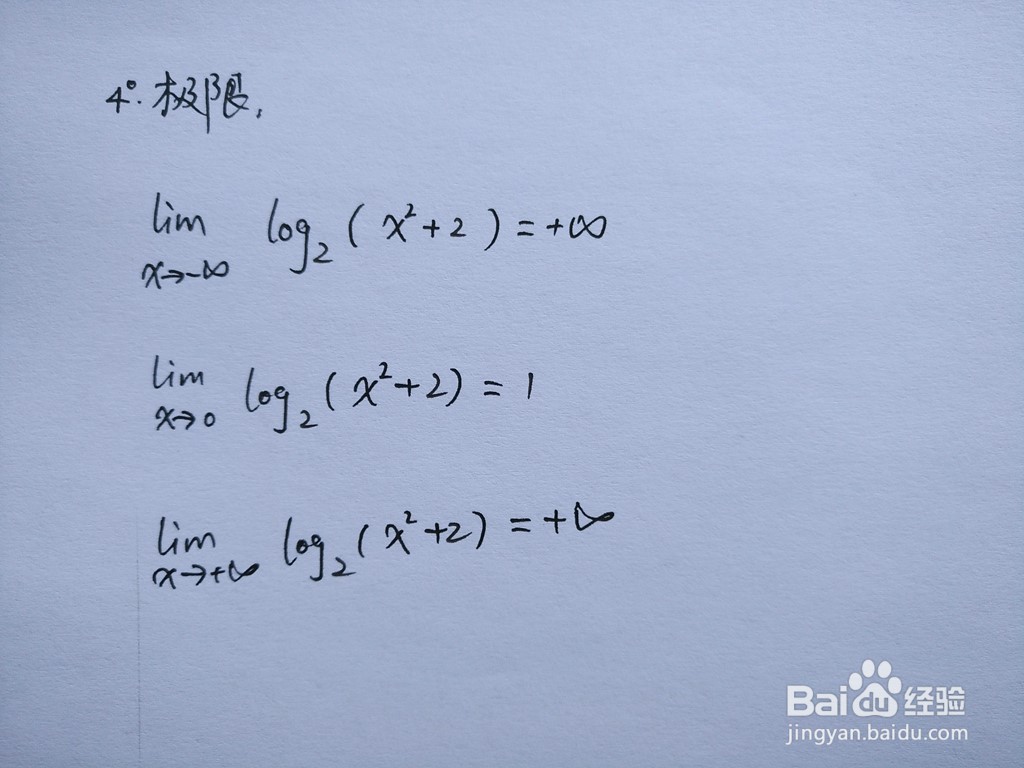 4°.极限.
lim log₂(x²+2)=+∞
x→-∞
lim log₂(x²+2)=1
x→0
lim log₂(x²+2)=+∞
x→+∞
Baidu经验
jingyan.baidu.com